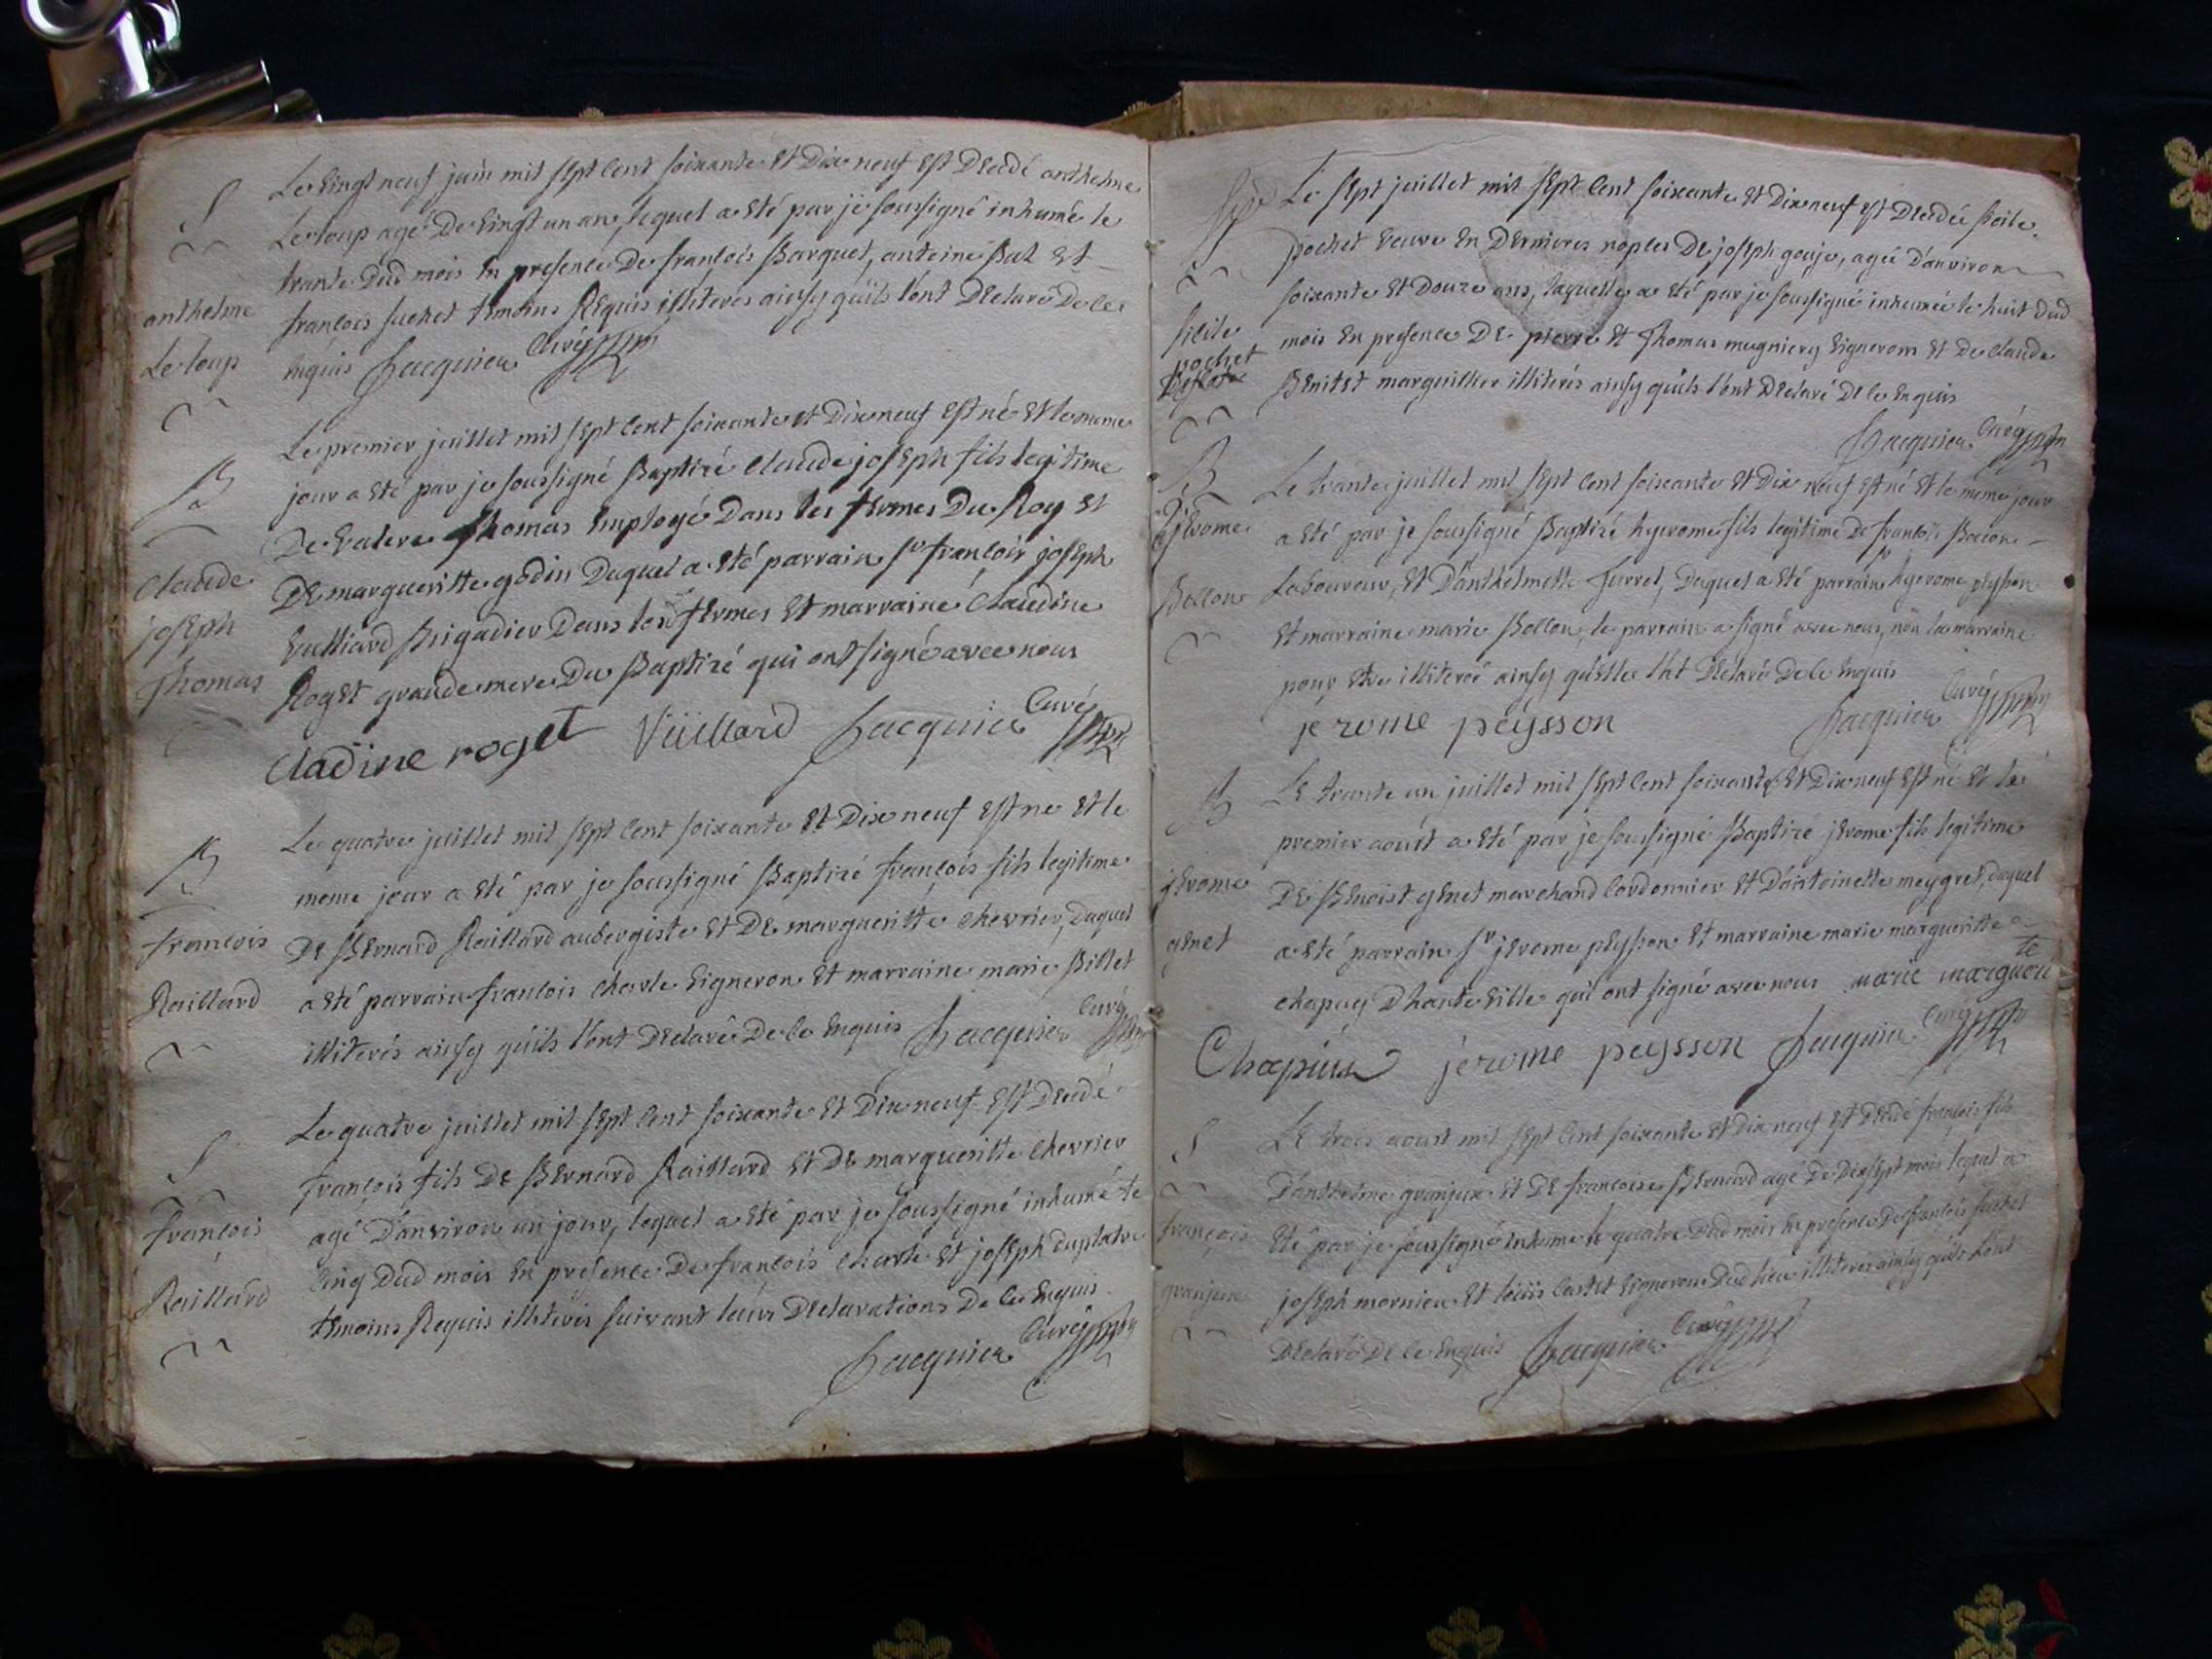 S
Le vingt neuf juin mil sept cent soixante et Dix neuf est Decedé anthelme
Le loup agé De vingt un an, lequel a eté par je soussigné inhumé le
trante dud mois en presence De francois Barquet, antoine But et
francois suchet temoins Requis illiterés ainsy quils l'ont Declaré De ce
enquis Jacquier Curé
anthelme
Le loup
B
Le premier juillet mil sept cent soixante et Dix neuf est né et le meme
jour a eté par je soussigné Baptizé Claude joseph fils legitime
De valere Thomas Employé Dans les fermes Du Roy et
De margueritte godin Duquel a eté parrain sr francois joseph
vulliard Brigadier Dans les fermes et marraine Claudine
Roget grande mere Du Baptizé qui ont signé avec nous
cladine roget Vüillard Jacquier Curé
Claude
joseph
Thomas
B
Le quatre juillet mil sept cent soixante et Dix neuf est né et le
meme jour a eté par je soussigné Baptizé francois fils legitime
De Bernard Raillard aubergiste et De margueritte chevrier, Duquel
a eté parrain francois charle vigneron et marraine marie Billet
illiterés ainsy quils l'ont Declaré De ce enquis Jacquier Curé
francois
Raillard
S
Le quatre juillet mil sept cent soixante et Dix neuf est Decedé
francois fils De Bernard Raillard et De margueritte chevrier
agé D'anviron un jour, lequel a eté par je soussigné inhumé le
cinq Dud mois en presence De francois charle et joseph duplatre
temoins Requis illiterés suivant leurs Declarations De ce enquis
Jacquier Curé
francois
Raillard
Le sept juillet mil sept cent soixante et Dix neuf est Decedée
pochet veuve en Dernieres noples De joseph goujo, agée D'anviron
soixante et Douze ans, laquelle a eté par je soussigné inhumée le huit Dud
mois en presence De pierre et Thomas mugniery vignerons et De claude
Benitet marguillier illiterés ainsy quils l'ont Declaré De ce enquis
Jacquier Curé
pochet
B
Le trante juillet mil sept cent soixante et Dix neuf est né et le meme jour
a eté par je soussigné Baptizé hyerome fils legitime De francois Bollon
Laboureur, et D'anthelmette furret, Duquel a eté parrain sr hyerome peysson
et marraine marie Bollon, le parrain a signé avec nous, non la marraine
pour etre illiteré ainsy qu'elle l'at Declaré De ce enquis
jérome peÿsson Jacquier Curé
hjerome
Bollon
B
Le trante un juillet mil sept cent soixante et Dix neuf est né et le
premier aoust a eté par je soussigné Baptizé jerome fils legitime
De Benoist genet marchand cordonnier et D'antoinette meygret, duquel
a eté parrain sr jerome peysson et marraine marie margueritte
chapuy D'hauteville qui ont signé avec nous marie marguerite
Chapuis jerome peysson Jacquier Curé
jerome
genet
S
Le trois aoust mil sept cent soixante et Dix neuf est Decedé francois fils
D'anthelme granjux et De francoise Bernard agé De Dix sept mois lequel a
eté par je soussigné inhumé le quatre Dud mois en presence De francois suchet
joseph mornieu et loüis vignerons Dud lieu illiterés ainsy quils l'ont
Declaré De ce enquis Jacquier Curé
francois
granjux